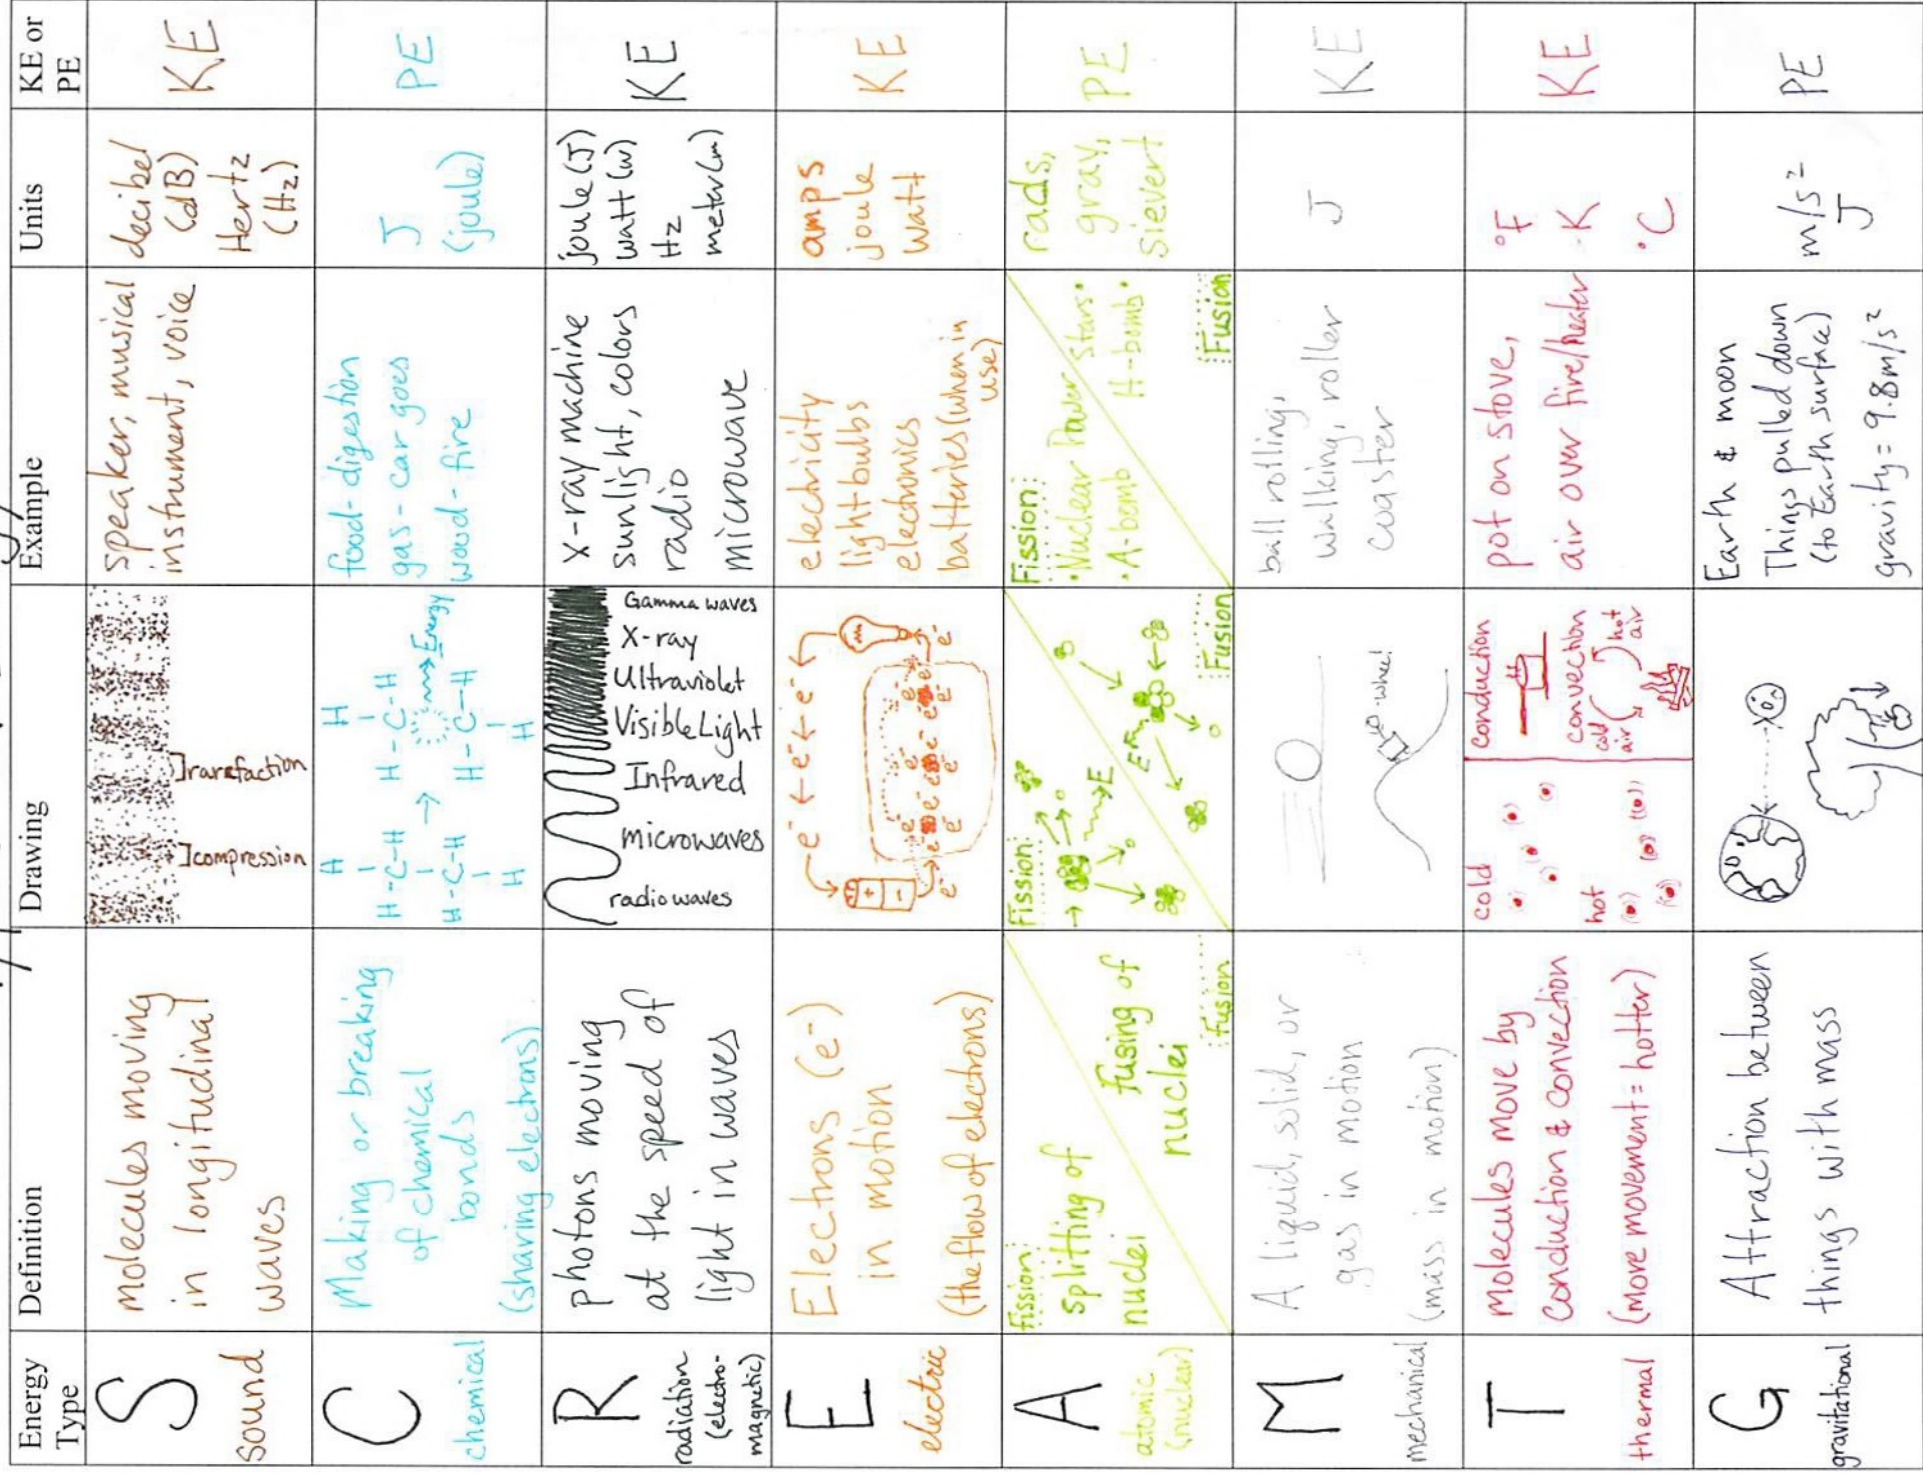 Energy Type
Definition
Drawing
Example
Units
KE or
PE
S
sound
molecules moving
in longitudinal
waves
]compression
]rarefaction
speaker, musical
instrument, voice
decibel
(dB)
Hertz
(Hz)
KE
C
chemical
Making or breaking
of chemical
bonds
(sharing electrons)
H H
H-C-H → H-C-H
H-C-H H-C-H → Energy
H H
food-digestion
gas-car goes
wood-fire
J
(joule)
PE
R
radiation
(electro-
magnetic)
photons moving
at the speed of
light in waves
radiowaves
microwaves
Infrared
Visible Light
Ultraviolet
X-ray
Gamma waves
x-ray machine
sunlight, colors
radio
microwave
joule (J)
watt (w)
Hz
meter (m)
KE
E
electric
Electrons (e-)
in motion
(the flow of electrons)
e- ← e- ← e-
+ -
e- e- e- e- e- e- e- e-
electricity
lightbulbs
electronics
batteries (when in
use)
amps
joule
watt
KE
A
atomic
(nuclear)
Fission:
splitting of
nuclei
fusing of
nuclei
Fusion
Fission:
E
E
Fusion
Fission:
·Nuclear Power
·A-bomb
Stars·
H-bomb·
Fusion
rads,
gray,
sievert
PE
M
mechanical
A liquid, solid, or
gas in motion
(mass in motion)
whee!
ball rolling,
walking, roller
coaster
J
KE
T
thermal
Molecules move by
conduction & convection
(more movement = hotter)
cold
hot
conduction
convection
cold
air
hot
air
pot on stove,
air over fire/heater
°F
·K
°C
KE
G
gravitational
Attraction between
things with mass
Earth & moon
Things pulled down
(to Earth surface)
gravity = 9.8m/s²
m/s²
J
PE